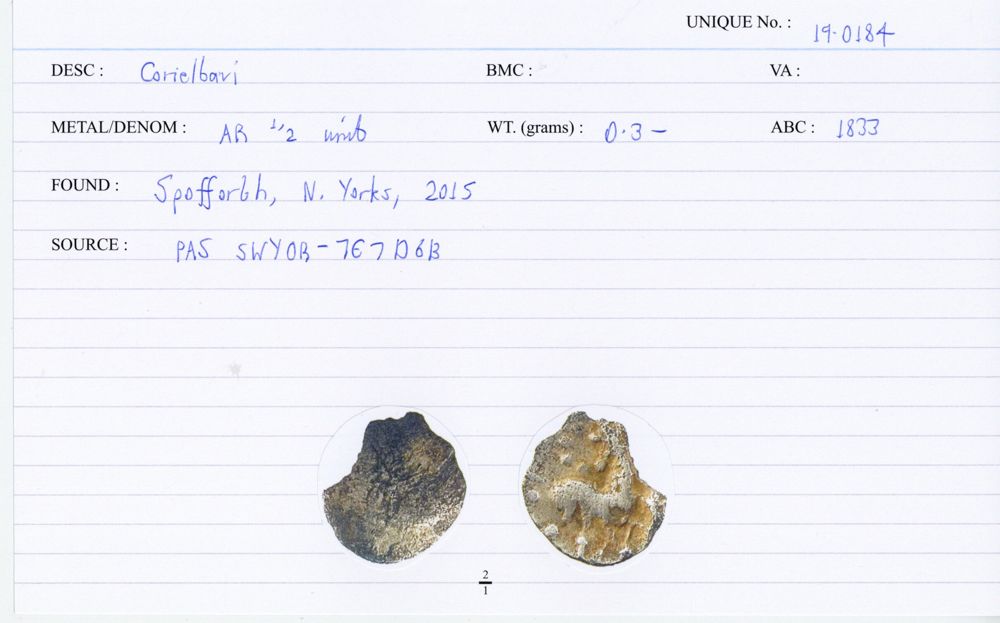 UNIQUE No. : 19.0184
DESC : Corieltavi BMC : VA :
METAL/DENOM : AR 1/2 unit WT. (grams) : 0.3 – ABC : 1833
FOUND : Spofforth, N. Yorks, 2015
SOURCE : PAS SWYOR-7E7D6B
2
1